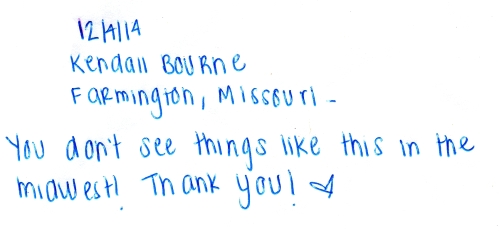 12/4/14
Kendall Bourne
Farmington, Missouri -
You don't see things like this in the
midwest! Thank you! ♡